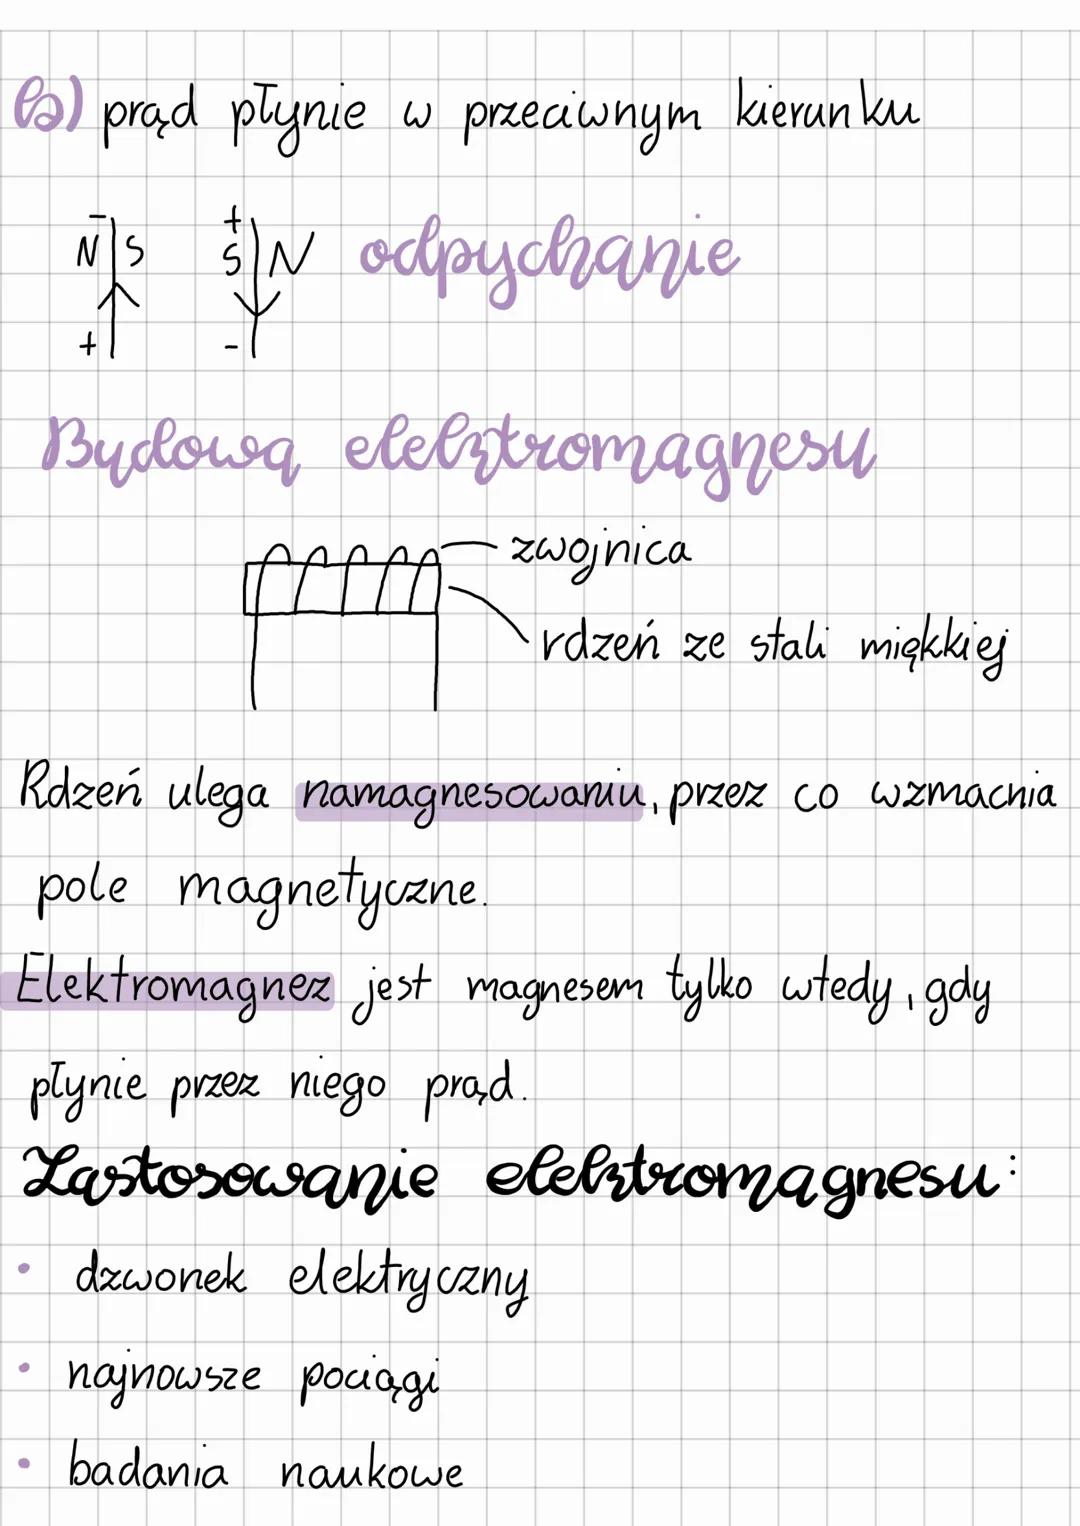 b) prąd płynie w przeciwnym kierunku
- +
N S S N odpychanie
+ -
Budowa elektromagnesu
zwojnica
rdzeń ze stali miękkiej
Rdzeń ulega namagnesowaniu, przez co wzmacnia
pole magnetyczne.
Elektromagnez jest magnesem tylko wtedy, gdy
płynie przez niego prąd.
Zastosowanie elektromagnesu:
• dzwonek elektryczny
• najnowsze pociągi
• badania naukowe